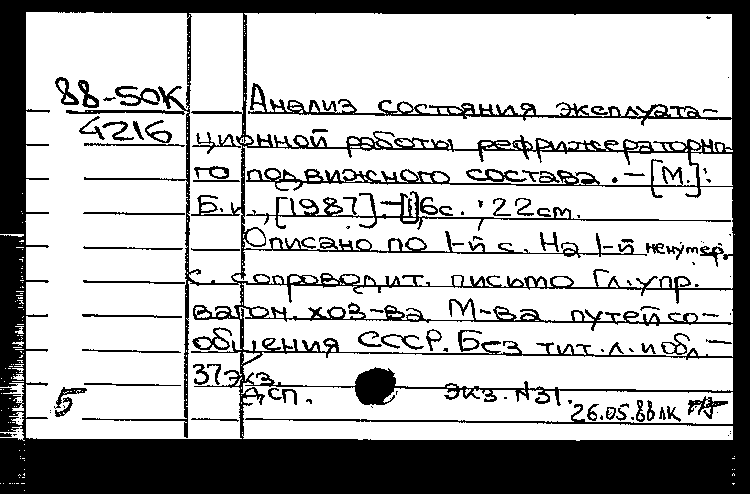 88-50К Анализ состояния эксплуата-
4216 ционной работы рефрижераторно-
го подвижного состава. - [М.]:
Б.и., [1987]. - [1], 6с. ; 22 см.
Описано по 1-й с. На 1-й ненумер.
с. сопроводит. письмо Гл. упр.
вагон. хоз-ва М-ва путей со-
общения СССР. Без тит. л. и обл. -
37 экз.
5 Дсп. экз. N31.
26.05.88